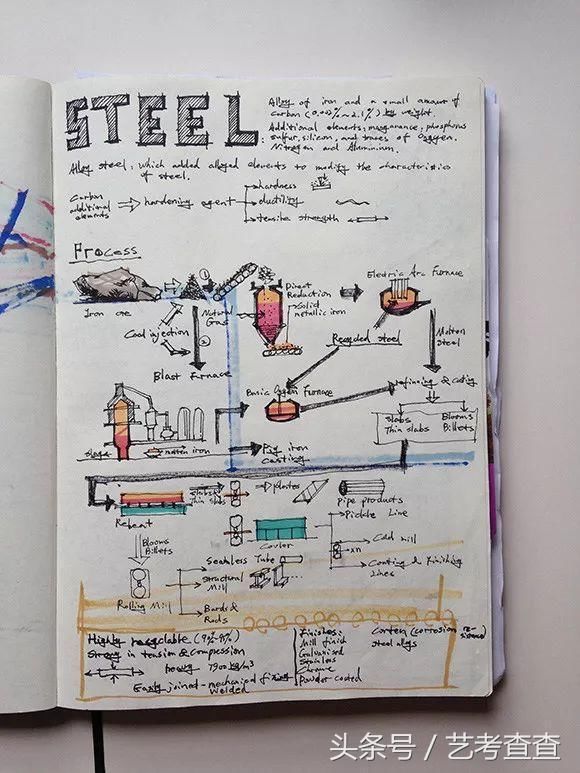 STEEL
Alloy of iron and a small amount of
carbon (0.02% ~ 2.1%) by weight
Additional elements; manganese, phosphorus
sulfur, silicon, and traces of Oxygen,
Nitrogen and Aluminium.
Alloy steel; which added alloyed elements to modify the characteristics
of steel.
Carbon
additional
elements
hardening agent
hardness
ductility
tensile strength
Process
Iron ore
①
②
Coal injection
Natural
Gas
Direct
Reduction
Solid
metallic iron
Electric Arc Furnace
Recycled steel
Molten
Steel
Blast Furnace
Basic Oxygen Furnace
refinning & casting
Slabs
Thin slabs
Blooms
Billets
slag
molten iron
Pig iron
Casting
Reheat
Slabs &
Thin slabs
plates
Pipe products
Pickle Line
Cooler
Cold mill
xn
Coating & Finishing
Lines
Blooms
Billets
Rolling Mill
Seamless Tube
Structural
Mill
Bards &
Rods
Highly recyclable
Strong in tension & compression
heavy 7900 kg/m3
Easily joined - mechanical fixing
welded
Finishes:
Mill finish
Galvanised
Stainless
Chrome
Powder coated
Corten (corrosion re-
sistance)
steel alloys
头条号 / 艺考查查